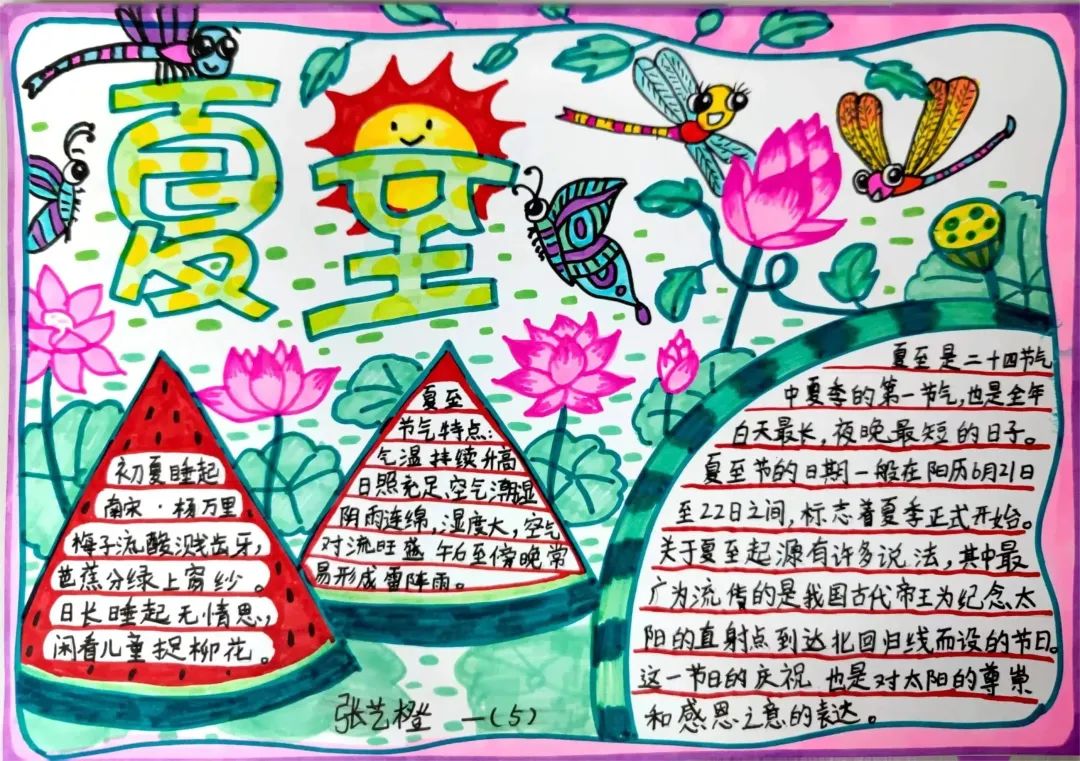 夏至
初夏睡起
南宋·杨万里
梅子流酸溅齿牙,
芭蕉分绿上窗纱。
日长睡起无情思,
闲看儿童捉柳花。
夏至
节气特点:
气温持续升高
日照充足,空气潮湿
阴雨连绵,湿度大,空气
对流旺盛 午后至傍晚常
易形成雷阵雨。
夏至是二十四节气
中夏季的第一节气,也是全年
白天最长,夜晚最短的日子。
夏至节的日期一般在阳历6月21日
至22日之间,标志着夏季正式开始。
关于夏至起源有许多说法,其中最
广为流传的是我国古代帝王为纪念太
阳的直射点到达北回归线而设的节日。
这一节日的庆祝 也是对太阳的尊崇
和感恩之意的表达。
张艺橙 一(5)